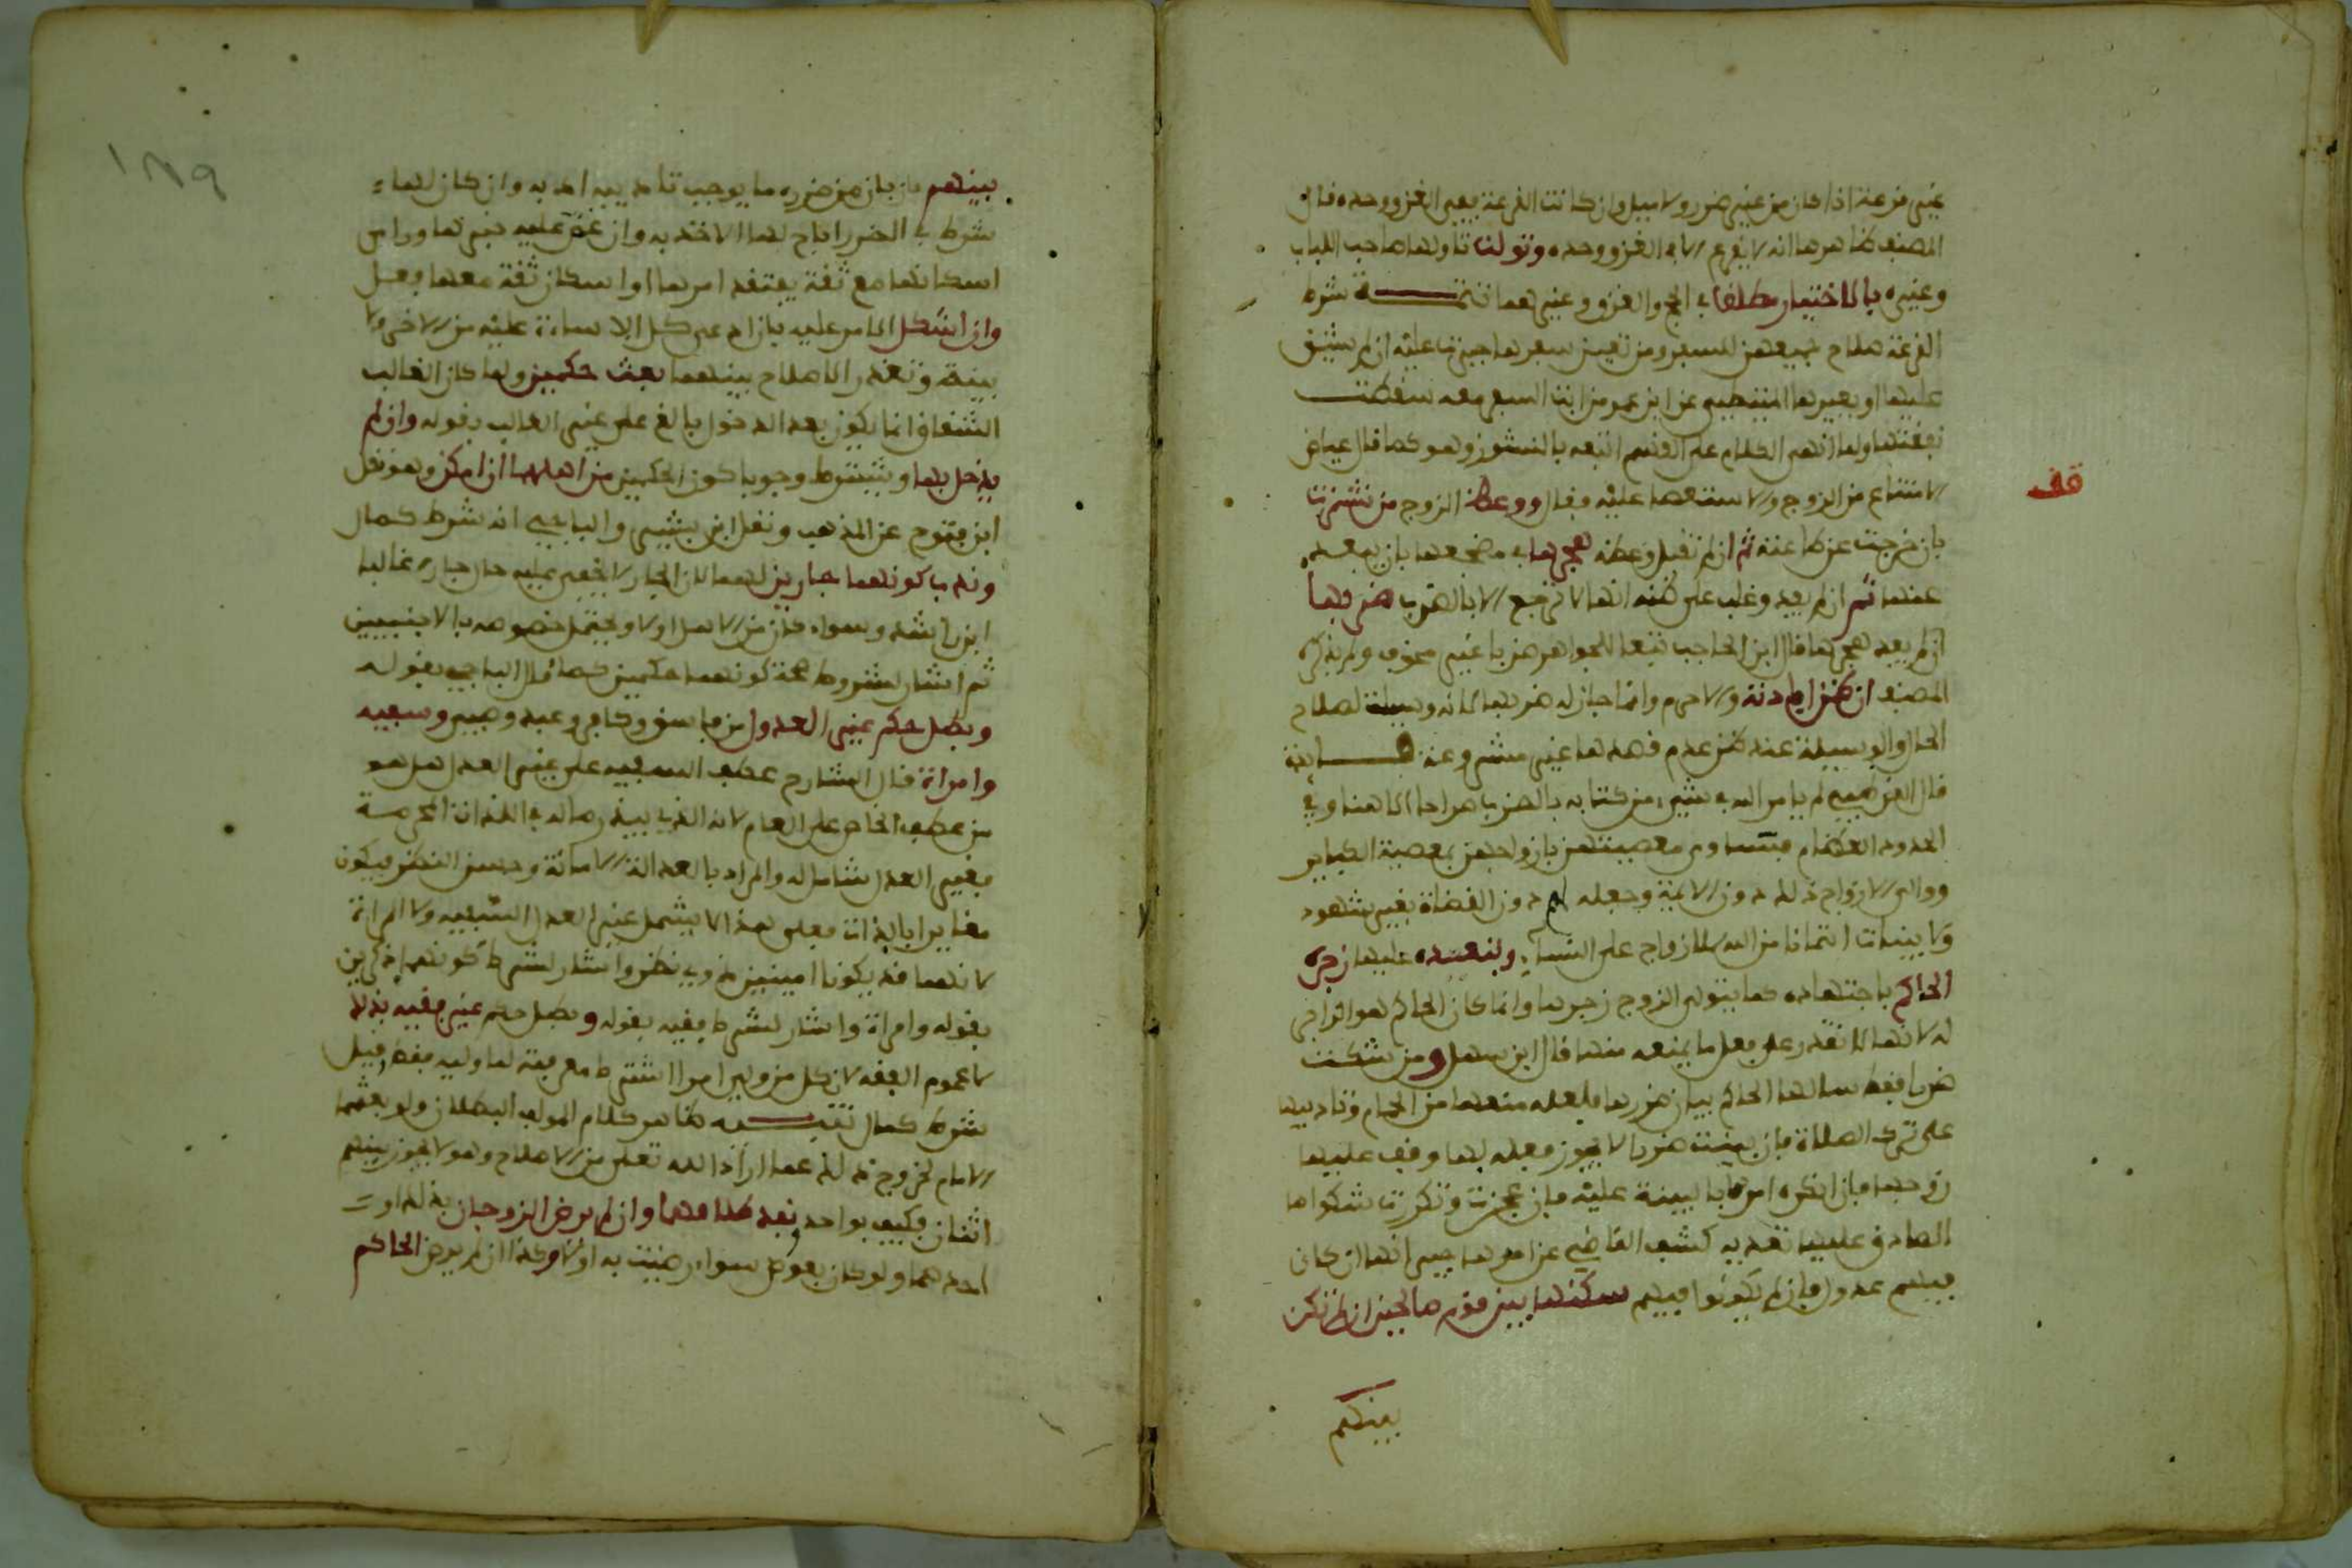 غير قرعة اذا كان من غير ضرر ولا ميل وان كانت القرعة ففي الغزو وحده قال
المصنف ظاهرها انه لا يقرع الا في الغزو وحده وتؤلت تاولها صاحب اللباب
وغيره بالاختيار مطلقا في الحج والغزو وغيرهما تتمة شرط
القرعة صلاح جميعهن للسفر ومن تعين سفرها جبرت عليه ان لم يشق
عليها او يعيرها القرطبي عن ابن عمر من ابت السفر معه سقطت
نفقتها ولما انهى الكلام على القسم اتبعه بالنشوز وهو كما قال عياض
الامتناع من الزوج والاستعصا عليه فقال ووعظ الزوج من نشزت
بان خرجت عن طاعته ثم ان لم تقبل وعظه هجرها في مضجعها بان يبعد
عنها ثم ان لم يفد وغلب على ظنه انها لا ترجع الا بالضرب ضربها
ان لم يفد هجرها قال ابن الحاجب تبعا للجواهر ضربا غير مخوف ولم يذكره
المصنف ان ظن افادته والا حرم وانما جاز له ضربها لانه وسيلة لصلاح
الحال والوسيلة عند ظن عدم قصدها غير مشروعة فـــايدة
قال القرطبي لم يامر الله في شيء من كتابه بالضرب صراحا الا هنا وفي
الحدود العظام فتساوى معصيتهن بازواجهن بمعصية الكباير
وولى الازواج ذلك دون الايمة وجعله لهم دون القضاة بغير شهود
ولا بينات ائتمانا من الله للازواج على النساء وبتعديه عليها زجره
الحاكم باجتهاده كما يتولى الزوج زجرها وانما كان الحاكم هو الزاجر
له لانها لا تقدر على فعل ما يمنعه منها قال ابن سهل ومن شكت
ضربا فقط سالها الحاكم بيان ضررها فلعله منعها من الحمام وتاديبها
على ترك الصلاة فان بينت ضربا لا يجوز فعله لها وقف عليها
زوجها فان انكره امرها بالبينة عليه فان عجزت وتكررت شكواها
الصادق عليها تعديه كشف القاضي عن امرها جيرانها ان كان
فيهم عدول فان لم يكونوا فيهم سكنها بين قوم صالحين ان لم تكن
بينهم
قف
١٨٩
بينهم فان بان من ضرره ما يوجب تاديبه ادبه وان كان لها
شرط في الضرر اباح لها الاخذ به وان عمى عليه خبرها وراى
اسكانها مع ثقة يفتقد امرها او اسكان ثقة معها فعل
وان اشكل الامر عليه بان ادعى كل الاساءة عليه من الاخر ولا
بينة وتعذر الاصلاح بينهما بعث حكمين ولما كان الغالب
الشقاق انما يكون بعد الدخول بالغ على غير الغالب بقوله وان لم
يدخل بها ويشترط وجوبا كون الحكمين من اهلهما ان امكن وهو نقل
ابن فتوح عن المذهب ونقل ابن بشير والباجي انه شرط كمال
وندب كونهما جارين لهما لان الجار لا يخفى عليه حال جاره غالبا
ابن راشد وسواء كان من الاهل او لا ويحتمل خصوصه بالاجنبيين
ثم اشار لشروط صحة كونهما حكمين كما قال الباجي بقوله
وبطل حكم غير العدول من فاسق وكافر وعبد وصبي وسفيه
وامراة قال الشارح عطف السفيه على غير العدل هل هو
من عطف الخاص على العام لان الذي يبذر ماله في اللذات المحرمة
فغير العدل شامل له والمراد بالعدالة الامانة وحسن النظر فيكون
مغايرا بالذات فعلى هذا لا يشمل غير العدل السفيه ولا المراة
لانهما قد يكونا امينين ذوي نظر واشار لشرط كونهما ذكرين
بقوله وامراة واشار لشرط فقهه بقوله وبطل حكم غير فقيه بذلك
لا عموم الفقه لان كل من ولي امرا اشترط معرفته لما وليه فقط وقيل
شرط كمال تنبيــه ظاهر كلام المولف البطلان ولو بعثهما
الامام لخروج ذلك عما اراد الله تعلى من الاصلاح وهو لا يجوز بينهم
اثنان فكيف بواحد ونفذ طلاقهما وان لم يرض الزوجان بذلك او
احدهما ولو كان بعوض سواء رضيت به اولا وكذا ان لم يرض الحاكم